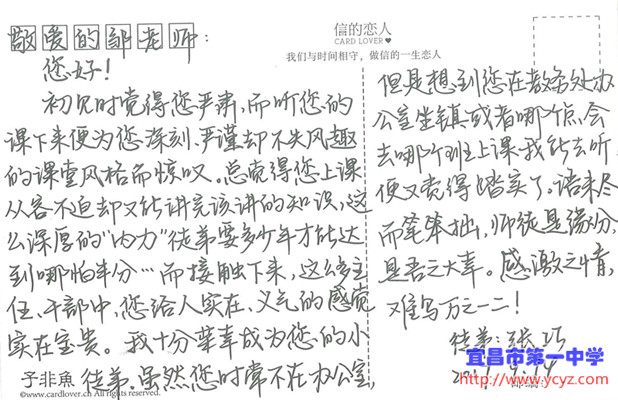 敬爱的邹老师:
您好!
初见时觉得您严肃,而听您的
课下来便为您深刻、严谨却不失风趣
的课堂风格而惊叹。总觉得您上课
从容不迫却又能讲完该讲的知识,这
么深厚的“内力”徒弟要多少年才能达
到哪怕半分…而接触下来,这么多主
任、干部中,您给人实在、义气的感觉
实在宝贵。我十分荣幸成为您的小
徒弟。虽然您时常不在办公室,
子非魚
©www.cardlover.ch All Rights Reserved
信的恋人
CARD LOVER♥
我们与时间相守,做信的一生恋人
但是想到您在教务处办
公室坐镇或者哪个点会
去哪个班上课我能去听
便又觉得踏实了。语未尽
而笔笨拙,师徒是缘分,
是吾之大幸。感激之情,
难写万之一二!
徒弟:张巧
宜昌市第一中学
http://www.ycyz.com